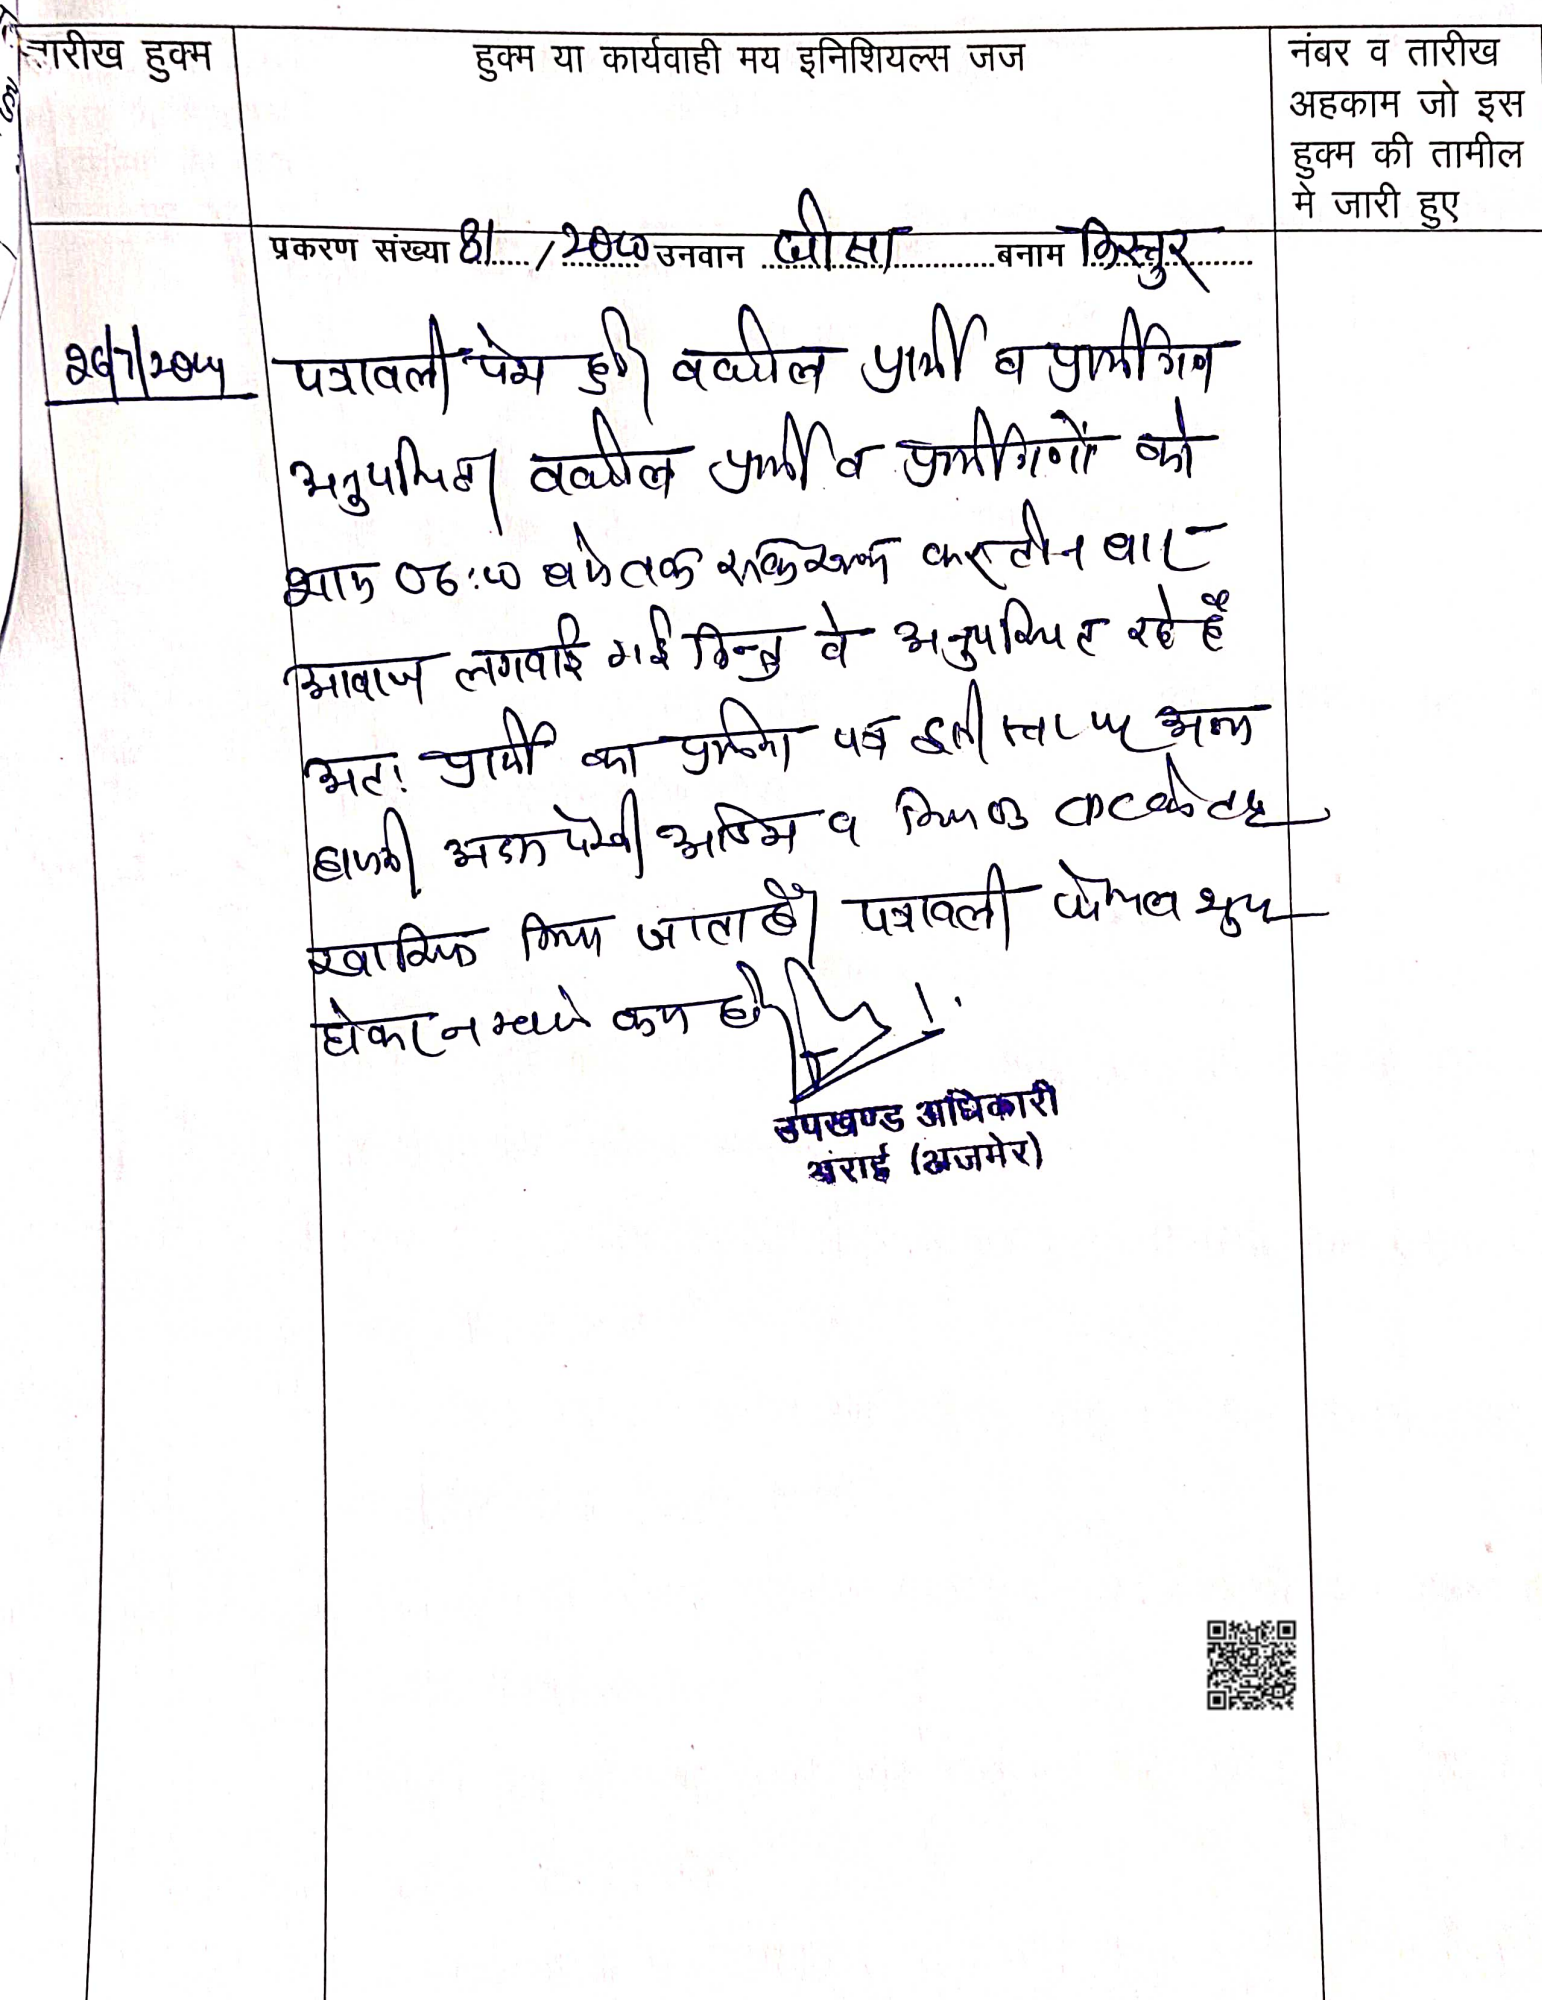 तारीख हुक्म
हुक्म या कार्यवाही मय इनिशियल्स जज
नंबर व तारीख
अहकाम जो इस
हुक्म की तामील
मे जारी हुए
प्रकरण संख्या 81 / उनवान बनाम किस्तुर
पत्रावली पेश हुई वकील प्रार्थी व प्रार्थीगण
अनुपस्थित। वकील प्रार्थी व प्रार्थीगणों को
शाम 06:00 बजे तक रूक रूक कर तीन बार
आवाज लगवाई गई किन्तु वे अनुपस्थित रहे है
अतः प्रार्थी का प्रार्थना पत्र इसी स्तर पर अदम
हाजरी अदम पेरवी में
खारिज किया जाता है। पत्रावली फैसल शुमार
होकर न कम हो।
उपखण्ड अधिकारी
अंराई (अजमेर)